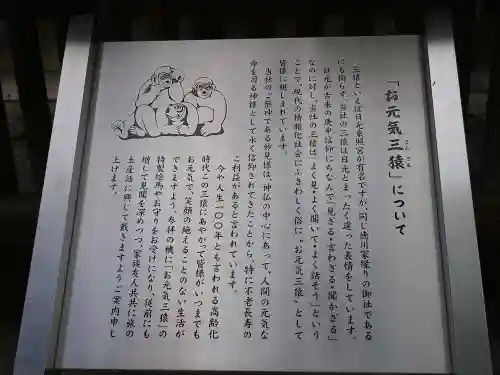 「お元気三猿」について
さんざる
三猿といえば日光東照宮が有名ですが、同じ徳川家縁りの御社である
にも拘らず、当社の三猿は日光とまったく違った表情をしています。
日光が古来の庚申信仰にちなんで「見ざる・言わざる・聞かざる」
なのに対し、当社の三猿は「よく見・よく聞いて・よく話そう」という
ことで、現代の情報化社会にふさわしく俗に〝お元気三猿〟として
皆様に親しまれています。
当社のご祭神である妙見様は、神仏の中心にあって、人間の元気な
命を司る神様として永く信仰されてきたことから、特に不老長寿の
ご利益があると言われています。
今や人生一〇〇年とも言われる高齢化
時代、この三猿にあやかって皆様が、いつまでも
お元気で、笑顔の絶えることのない生活が
できますよう、参拝の機に「お元気三猿」の
特製絵馬やお守りをお受けになり、従前にも
増して見聞を深めつつ、家族友人共共に旅の
土産話に興じて戴きますようご案内申し
上げます。